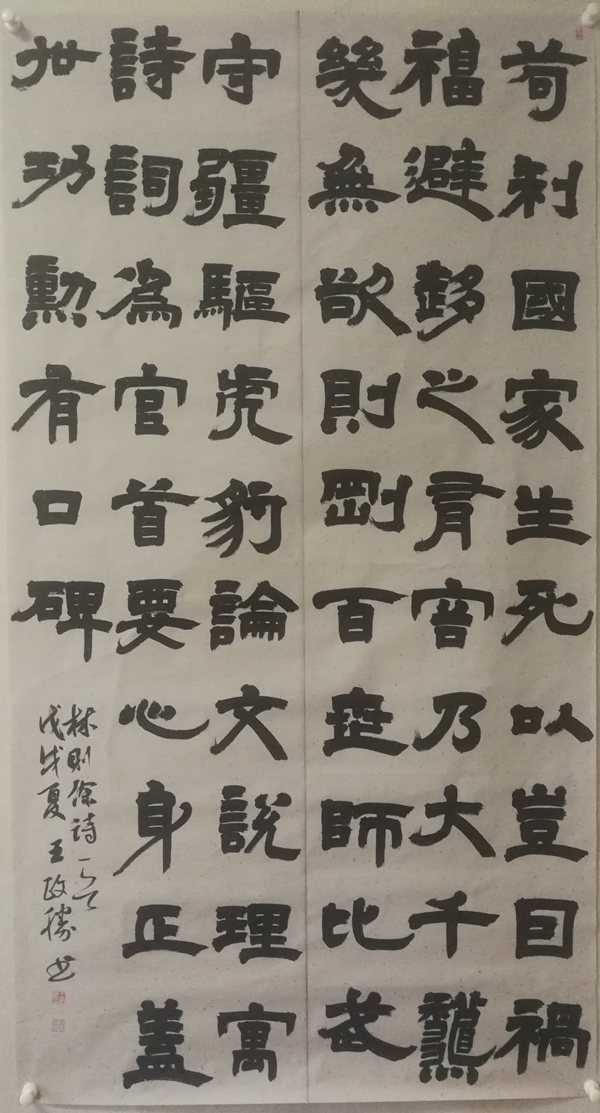 苟利國家生死以豈因禍
福避趨之有容乃大千龝
幾無欲則剛百世師比武
守疆驅虎豹論文說理寓
詩詞為官首要心身正蓋
世功勳有口碑
林則徐詩一首
戊戌夏 王政勝书